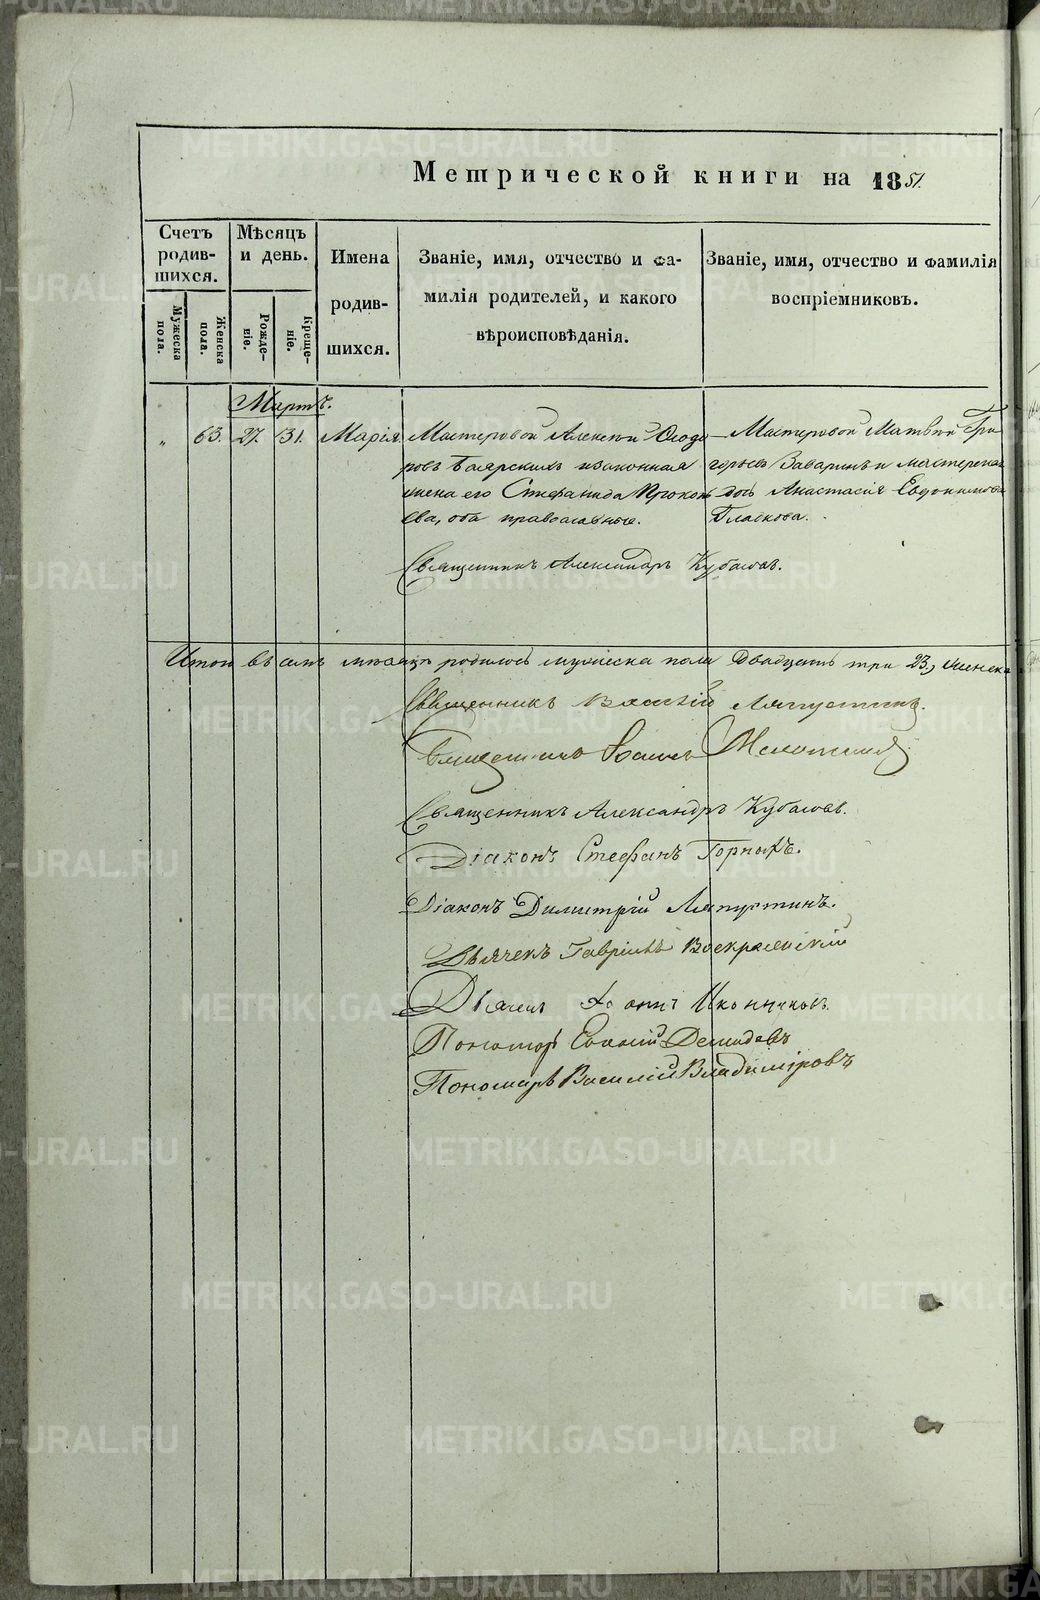 Метрической книги на 1851.
Счетъ родившихся.
Мужеска пола.
Женска пола.
Мѣсяцъ и день.
Рожденіе.
Крещеніе.
Имена родившихся.
Званіе, имя, отчество и фамилія родителей, и какого вѣроисповѣданія.
Званіе, имя, отчество и фамилія воспріемниковъ.
Мартъ.
„ 63. 27. 31. Марія
Мастеровой Алексѣй Ѳеодо-
ровъ Боярскихъ и законная
жена его Стефанида Прокопь-
ева, оба православные.
Мастеровой Матвѣй Гри-
горьевъ Заваринъ и мастерска
дочь Анастасія Евдокимова
Глаткова.
Священникъ Александръ Кубасовъ.
Итого въ семъ мѣсяцѣ родилось мужеска пола двадцать три 23, женска
Священникъ Василій Ляпустинъ.
Священникъ Іоаннъ
Священникъ Александръ Кубасовъ.
Діаконъ Стефанъ Горныхъ.
Діаконъ Димитрій Ляпустинъ.
Дьячекъ Гавріилъ Воскресенскій
Дьячекъ Иконниковъ.
Пономарь Демидовъ
Пономарь Василій Владиміровъ
METRIKI.GASO-URAL.RU